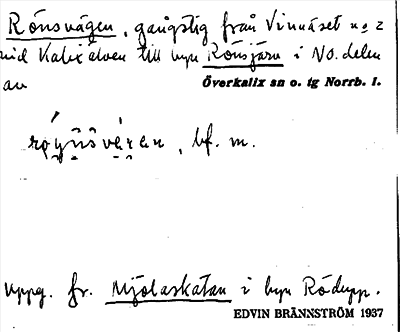 Rönsvägen, gångstig från Vinnäset n:o 2
vid Kalixälven till byn Rönsjärv i No. delen
av Överkalix sn o. tg Norrb. l.
bf. m.
uppg. fr. Mjölaskatan i byn Rödupp.
EDVIN BRÄNNSTRÖM 1937